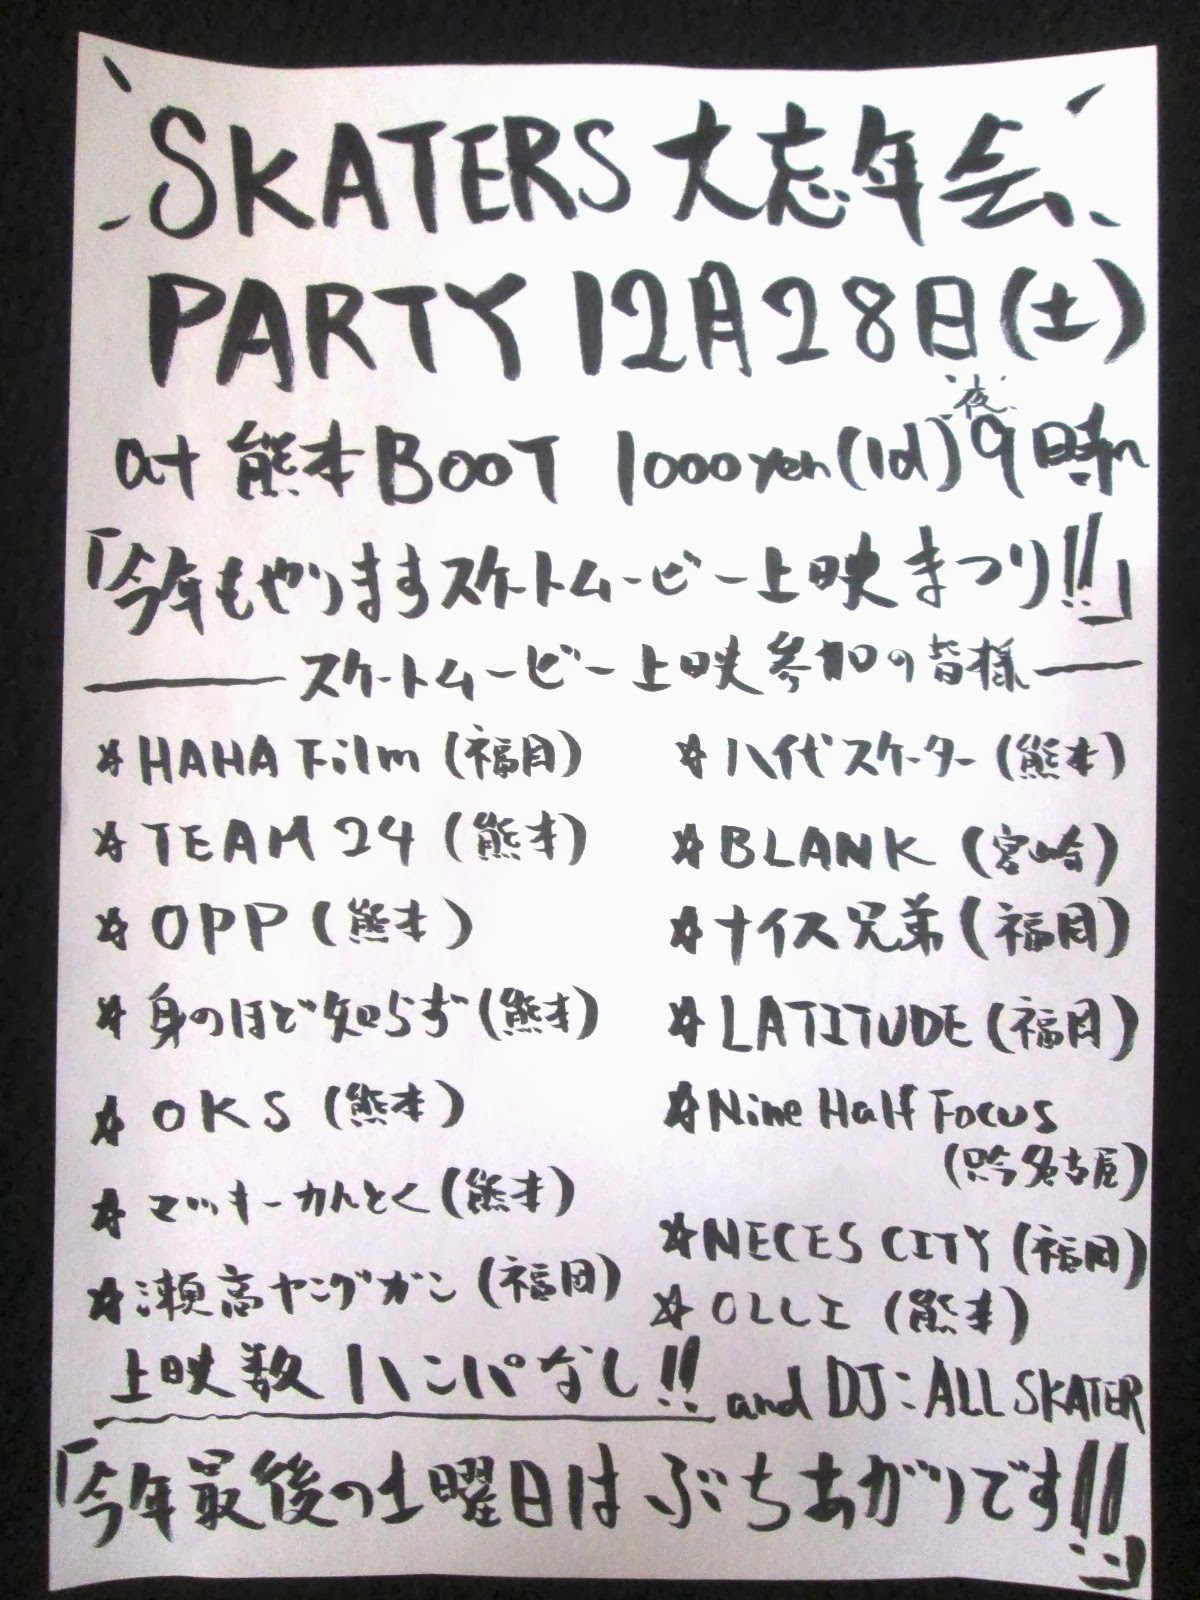 SKATERS 大忘年会
PARTY 12月28日(土)
at 熊本BOOT 1000yen(1d) 夜9時~
「今年もやりますスケートムービー上映まつり!!」
スケートムービー上映参加の皆様
☆HAHA Film (福岡)
☆TEAM 24 (熊本)
☆OPP (熊本)
☆身のほど知らず (熊本)
☆OKS (熊本)
☆マッキーかんとく (熊本)
☆瀬高ヤングガン (福岡)
☆八代スケーター (熊本)
☆BLANK (宮崎)
☆ナイス兄弟 (福岡)
☆LATITUDE (福岡)
☆Nine Half Focus
(只今名古屋)
☆NECES CITY (福岡)
☆OLLI (熊本)
上映数ハンパなし!!
and DJ:ALL SKATER
「今年最後の土曜日はぶちあがりです!!」